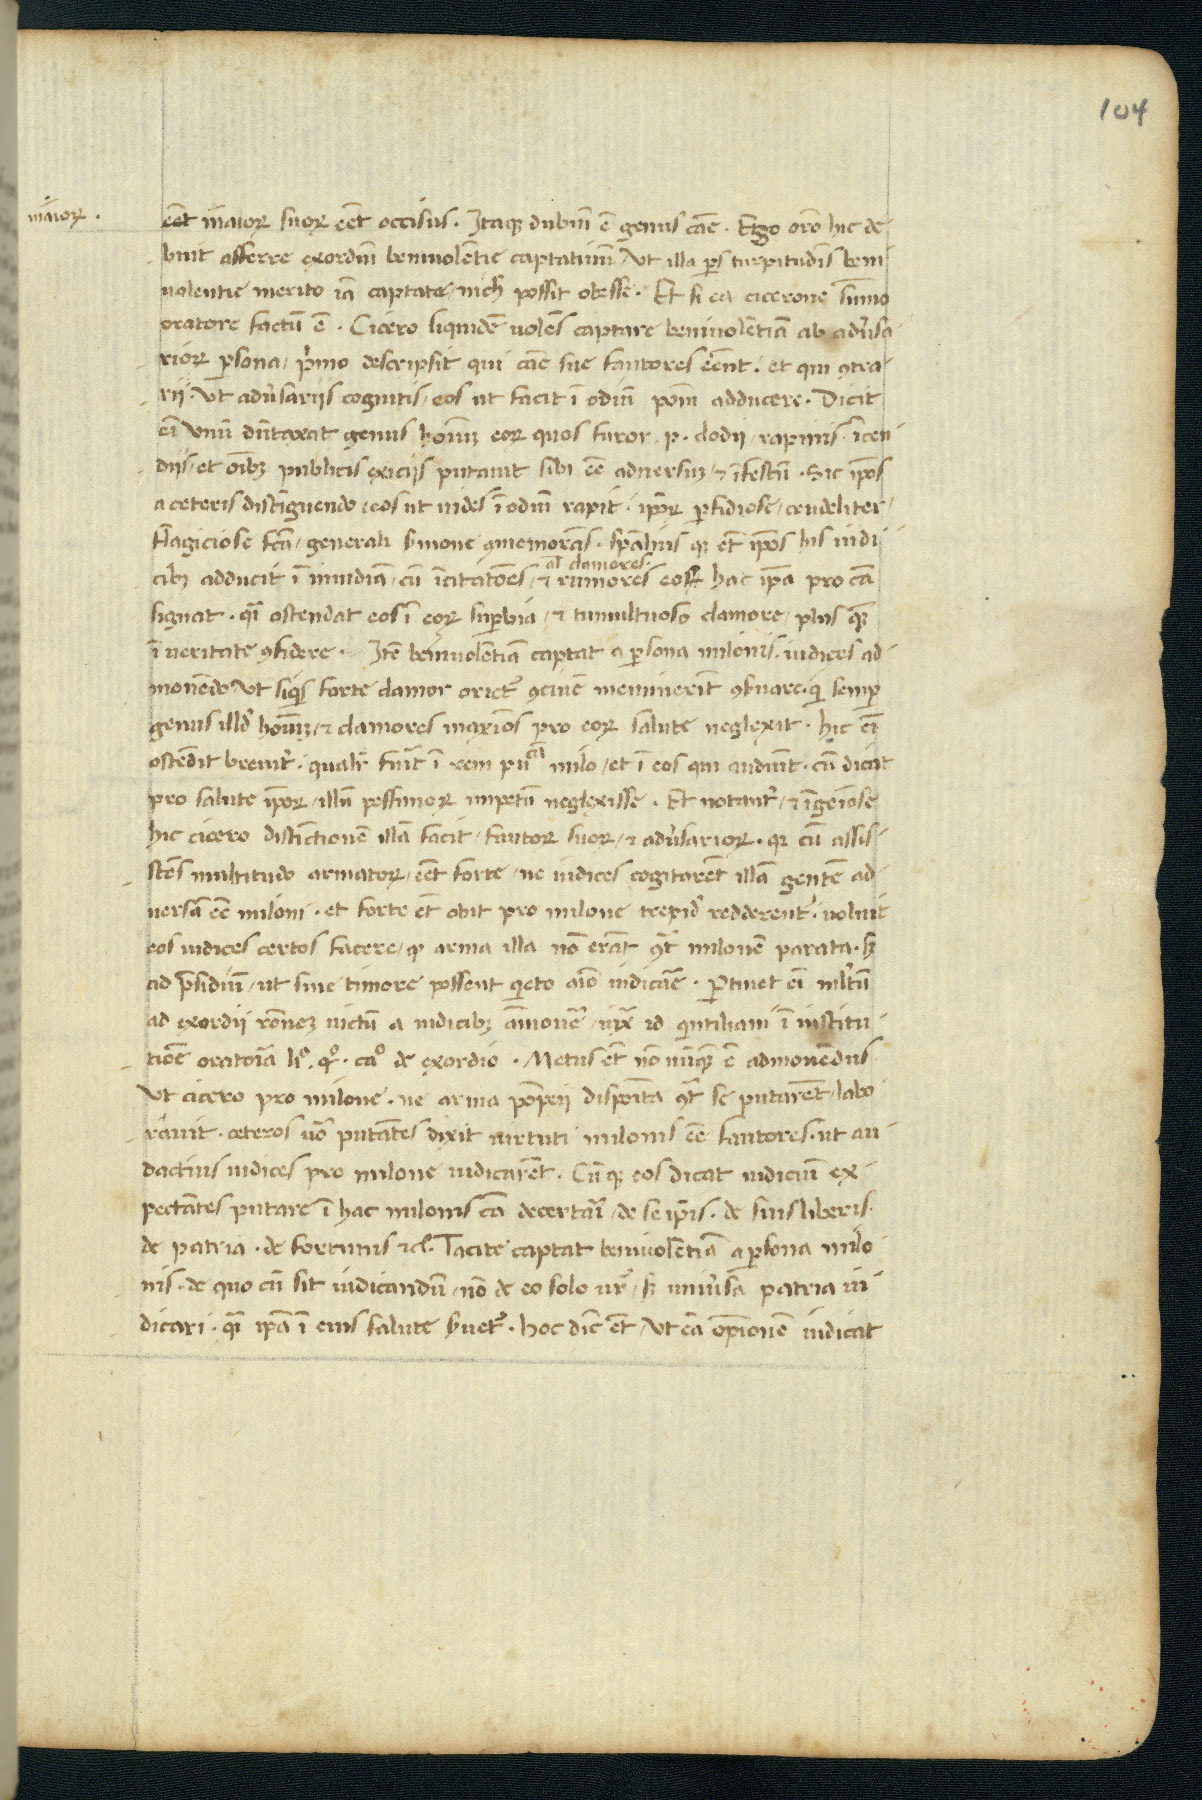 104
maioꝝ .
eēt maioꝝ suoꝝ eēt occisus . Itaqꝫ dubiū ē genus cāe . Ergo orō hic de
buit afferre exordiū beniuolētie captatiuū / Ut illa ꝑs turpitudīs beni
uolentie merito iā captate / nich possit obesse . Et si ea cicerone sūmo
oratore factū ē . Cicero siquidē uolēs captare beniuolētiā ab adũsa
rioꝝ ꝑsona / p̃mo descripsit qui cāe sue fautores eēnt . et qui ꝯtra
rii . Ut adũsariis cognitis / eos ut facit ī odiū poīt adducere . Dicit
eī Unū dūtaxat genus hoīuꝫ eoꝝ quos furor . p . clodii / rapinis . icen
diis / et oībꝫ publicis exiciis putauit sibi eē adnersuꝫ / ⁊ ifestū . Sic ip̄os
a ceteris distīguendo / eos ut uides ī odiū rapit . ip̄oꝝ ꝑfidiose / crudeliter /
flagiciose fcā / generali ẜmone ꝯmemorās . spālius qꝫ et ip̄os his iudi
al clamores .
cibꝫ adducit ī inuidiā / cū icitatōes / ⁊ rumores eoꝝ hac ip̄a pro cā
signat . qī ostendat eos ī eoꝝ suꝑbia / ⁊ tumultuoso clamore / plus qꝫ
ī ueritate ꝯfidere . Itē beīuolētiā captat a ꝑsona milonis . iudices ad
monēdo Ut siqs forte clamor oriet ꝯciuē meminerīt ꝯẜuare . q semꝑ
genus illd hoīuꝫ / ⁊ clamores maxīos pro eoꝝ salute neglexit . hic eī
ostēdit breuit̃ . qualr fuīt ī rem pucā milo / et ī eos qui audiūt . cū dicit
pro salute ip̄oꝝ / illū pessimoꝝ impetū neglexisse . Et notant̃ / ⁊ īgeiose
hic cicero distictionē illā facit / fautoꝝ suoꝝ / ⁊ adũsarioꝝ . qꝫ cū assis
stēs multitudo armatoꝝ / eēt forte / ne iudices cogitarēt illā gentē ad
uersā eē miloni . et forte et obit pro milone trepid redderent̃ . uoluit
eos iudices certos facere / qꝫ arma illa nō erāt ꝯt̃ milonē parata . sꝫ
ad p̄sidiū / ut sine timore possent qieto aīo iudicāe . Ptinet eī mltū
ad exordii rōneꝫ metū a iudicibꝫ āmoue / iux̄ id qntiliani ī institu
tiōe oratoria lꝰ . qꝰ . caꝰ de exordio . Metus et nō nūqꝫ ē admonēdus
Ut cicero pro milone . ne arma pōpeii disposita ꝯt̃ se putarēt / labo
rauit . ceteros uꝰ putātes dixit uirtuti milonis eē fautores . ut au
dactius iudices pro milone iudicarēt . Cūqꝫ eos dicat iudiciū ex
pectātes putare ī hac milonis cā decertari / de se ip̄is . de suis liberis .
de patria . de fortunis ⁊c . Tacite captat beniuolētiā a ꝑsona milo
nis . de quo cū sit iudicandū / nō de eo solo ur̃ / sꝫ uniũsa patria iu
dicari . qī ip̄a ī eius salute ẜuet̃ . Hoc dic et / Ut eā opīionē iudicat